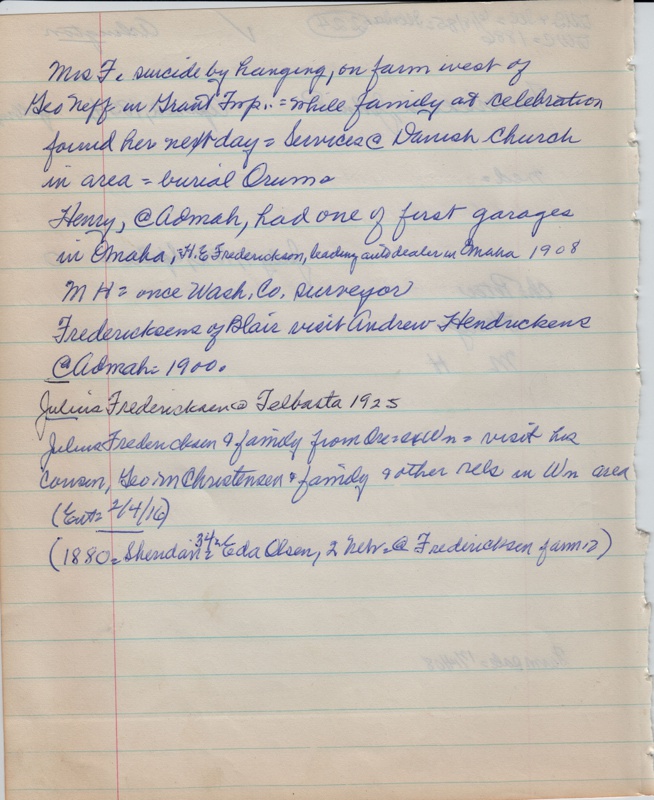 Mrs F. suicide by hanging, on farm west of
Geo Neff in Grant Twp.. = while family at celebration
found her next day = Services @ Danish Church
in area = burial Orum.
Henry, @ Admah, had one of first garages
in Omaha, H.E Frederickson, leading auto dealer in Omaha 1908
M H = once Wash. Co. surveyor
Fredericksens of Blair visit Andrew Hendricksens
@ Admah = 1900.
Julius Fredericksen @ Telbasta 1925
Julius Fredericksen & family from Ore = & Wn = visit his
Cousin, Geo M Christensen & family & other rels in Wn area
(Ent = 2/4/16)
(1880 = Sheridan = Eda Olsen, 2 Nebr = @ Fredericksen farm = ?)